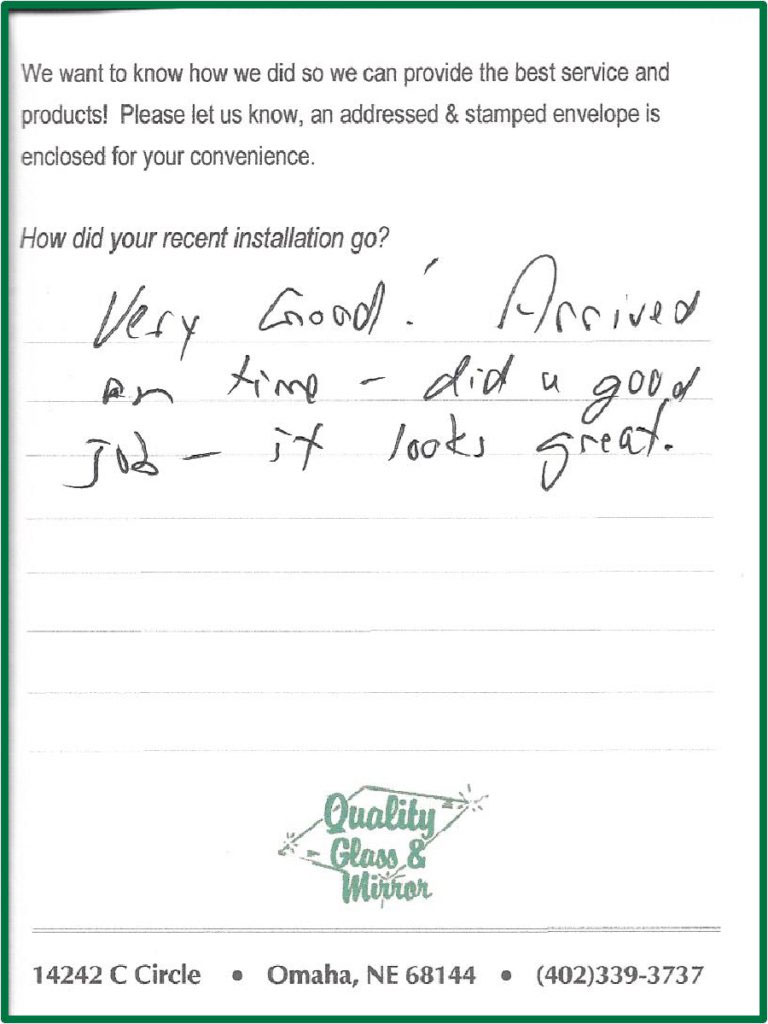 We want to know how we did so we can provide the best service and
products! Please let us know, an addressed & stamped envelope is
enclosed for your convenience.
How did your recent installation go?
Very Good! Arrived
on time - did a good
job - it looks great.
Quality
Glass &
Mirror
14242 C Circle • Omaha, NE 68144 • (402)339-3737